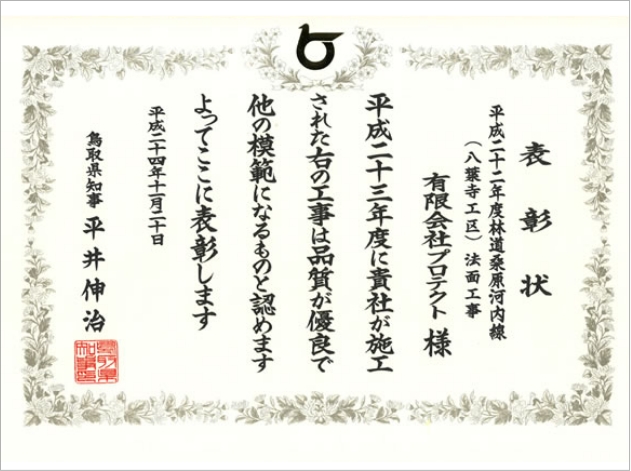 表彰状
平成二十二年度林道桑原河内線
（八葉寺工区）法面工事
有限会社プロテクト 様
平成二十三年度に貴社が施工
された右の工事は品質が優良で
他の模範になるものと認めます
よってここに表彰します
平成二十四年十一月二十日
鳥取県知事 平井伸治